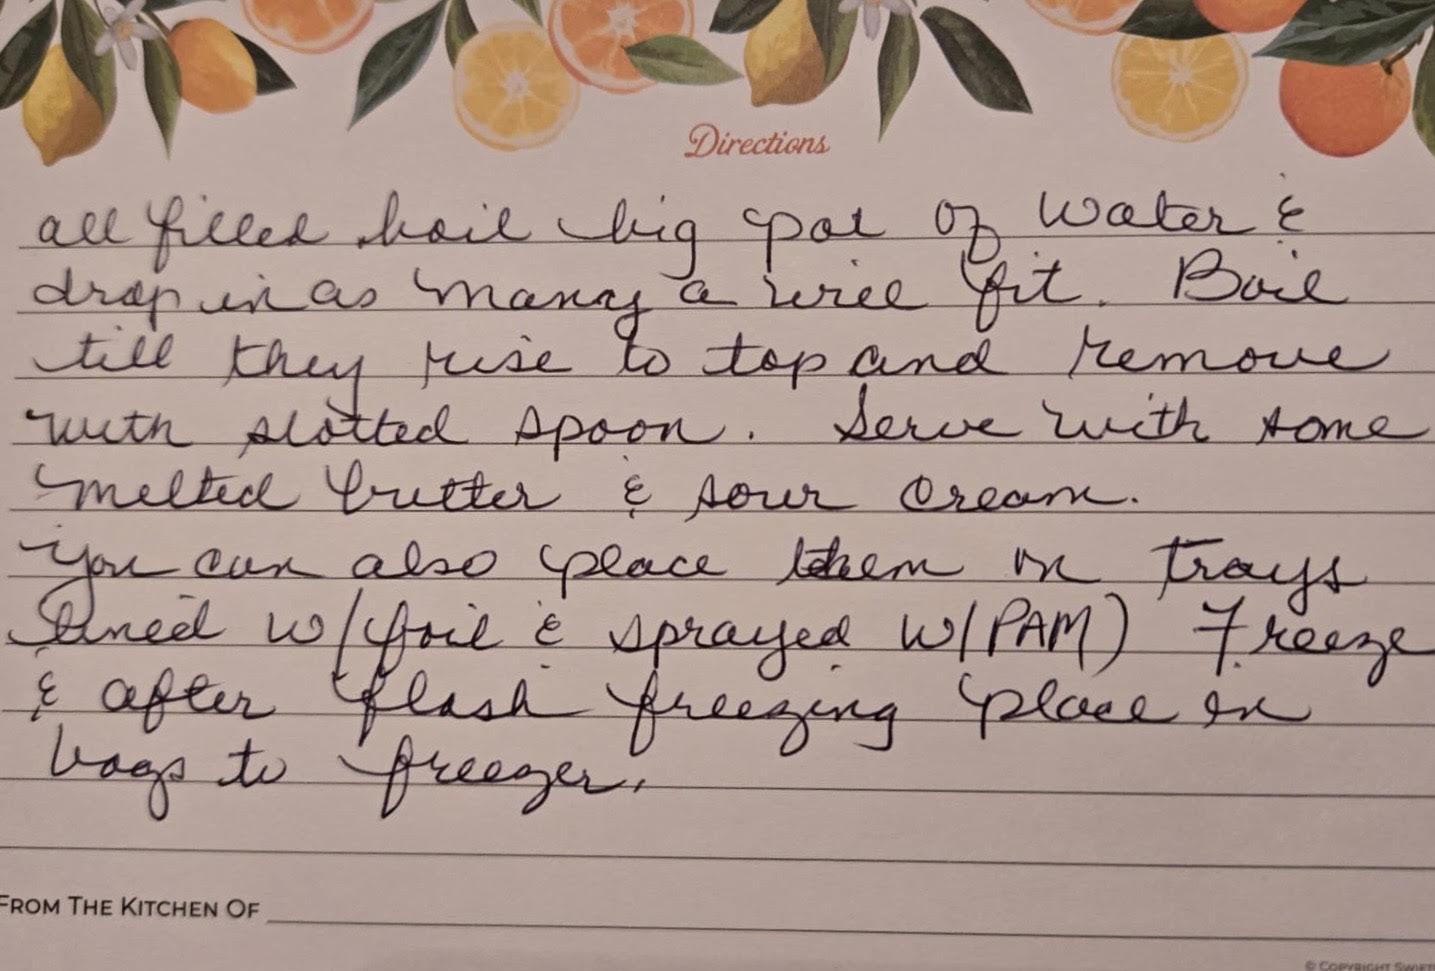 Directions
all filled boil big pot of water &
drop in as many a will fit. Boil
till they rise to top and remove
with slotted spoon. Serve with some
melted butter & sour cream.
You can also place them on trays
lined w/foil & sprayed w/PAM) Freeze
& after flash freezing place in
bags to freezer.
FROM THE KITCHEN OF
© COPYRIGHT